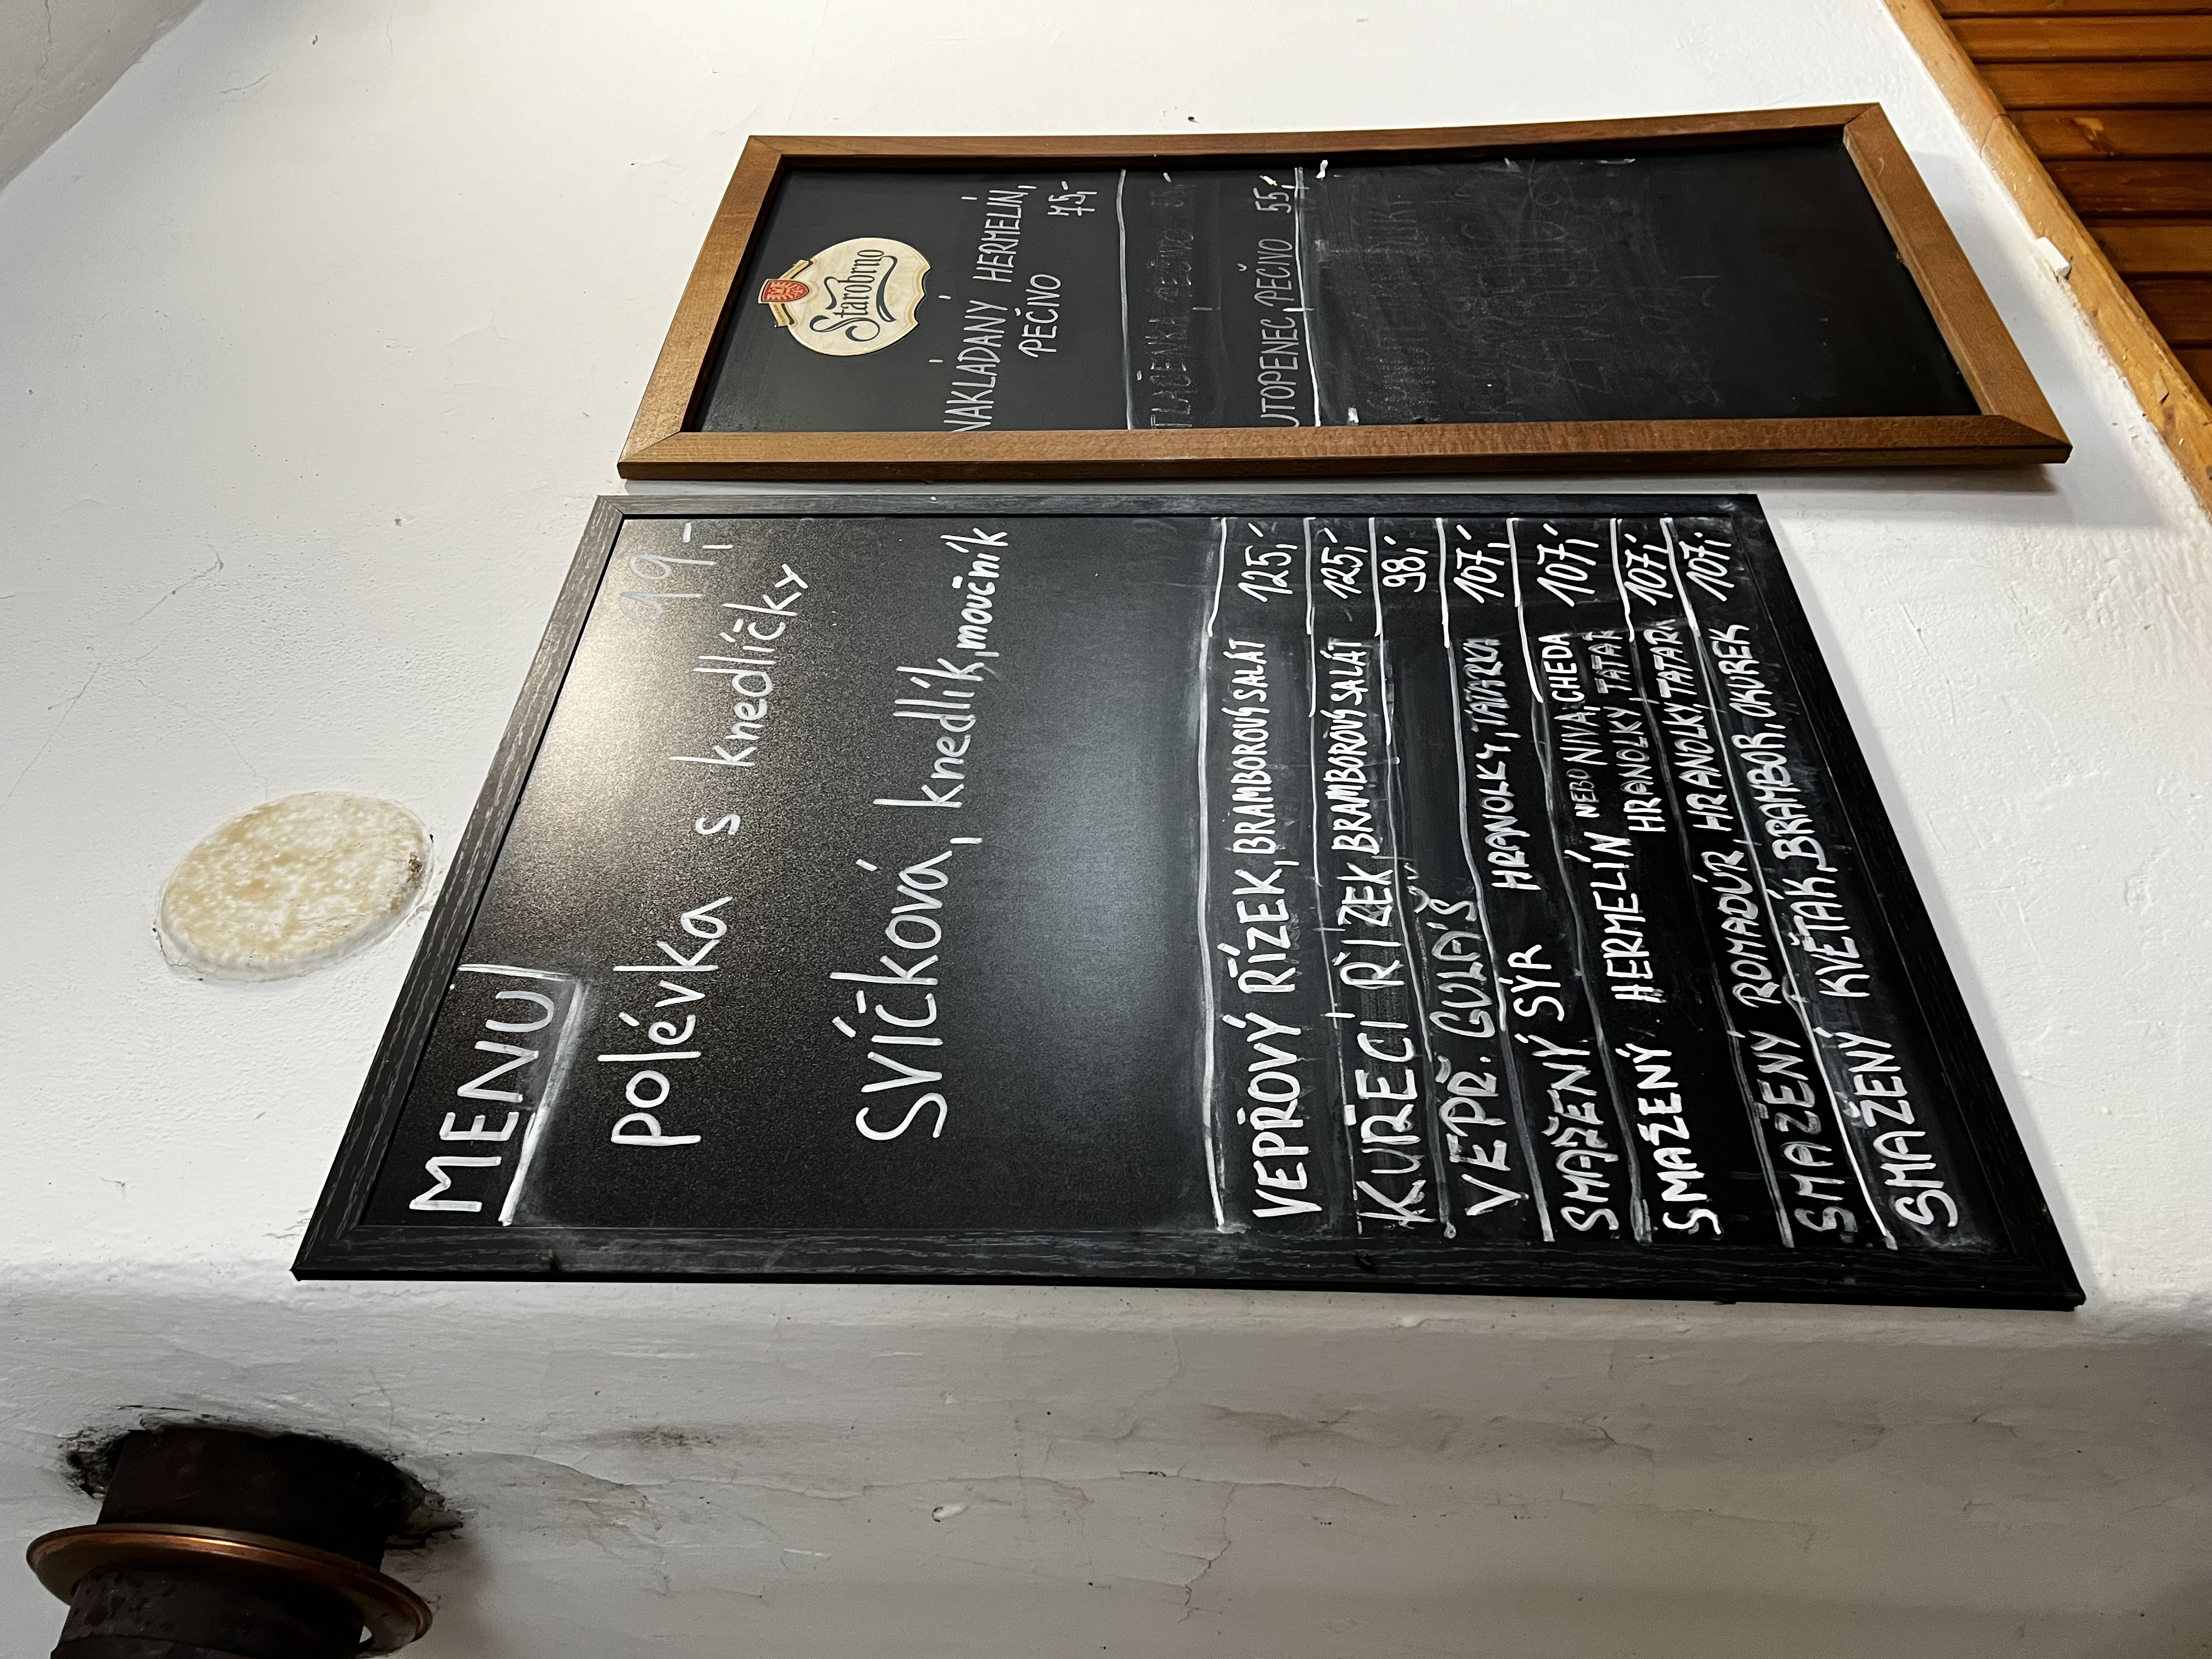 MENU
99,-
polévka s knedlíčky
Svíčková, knedlík, moučník
VEPŘOVÝ ŘÍZEK, BRAMBOROVÝ SALÁT 125,-
KUŘECÍ ŘÍZEK, BRAMBOROVÝ SALÁT 125,-
VEPŘ. GULÁŠ 98,-
SMAŽENÝ SÝR HRANOLKY, TATARKA 107,-
SMAŽENÝ HERMELÍN NEBO NIVA, CHEDA 107,-
HRANOLKY, TATAR
SMAŽENÝ ROMADÚR, HRANOLKY, TATAR 107,-
SMAŽENÝ KVĚTÁK, BRAMBOR, OKUREK 107,-
Starobrno
NAKLÁDANÝ HERMELÍN,
PEČIVO 75,-
TLAČENKA, PEČIVO
UTOPENEC, PEČIVO 55,-